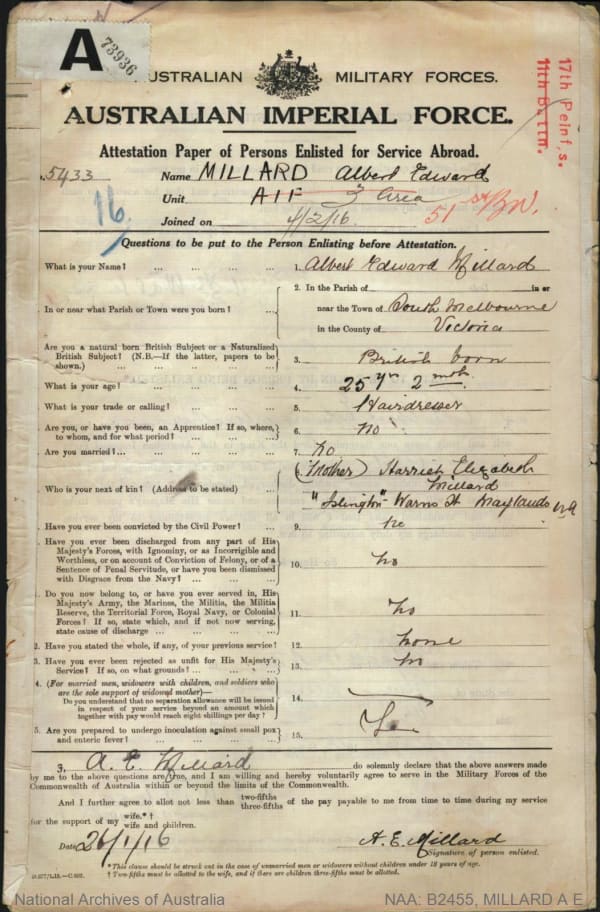 A
73936
AUSTRALIAN MILITARY FORCES.
AUSTRALIAN IMPERIAL FORCE.
17th Reinf,s.
11th Battn.
Attestation Paper of Persons Enlisted for Service Abroad.
5433 Name MILLARD Albert Edward
Unit AIF 5 Area
16 Joined on 4/2/16 51st Bn.
Questions to be put to the Person Enlisting before Attestation.
What is your Name? ... ... ... ... 1. Albert Edward Millard
In or near what Parish or Town were you born? ... 2. In the Parish of in or
near the Town of South Melbourne
in the County of Victoria
Are you a natural born British Subject or a Naturalized
British Subject? (N.B.—If the latter, papers to be
shown.) ... ... ... ... 3. British born
What is your age? ... ... ... ... 4. 25 yrs 2 mth.
What is your trade or calling? ... ... ... 5. Hairdresser
Are you, or have you been, an Apprentice? If so, where,
to whom, and for what period? ... ... ... 6. no
Are you married?... ... ... ... 7. no
Who is your next of kin? (Address to be stated) ... 8. (Mother) Harriet Elizabeth
Millard
"Islington" St Maylands WA
. Have you ever been convicted by the Civil Power? ... 9. no
. Have you ever been discharged from any part of His
Majesty's Forces, with Ignominy, or as Incorrigible and
Worthless, or on account of Conviction of Felony, or of a
Sentence of Penal Servitude, or have you been dismissed
with Disgrace from the Navy? ... ... ... 10. no
. Do you now belong to, or have you ever served in, His
Majesty's Army, the Marines, the Militia, the Militia
Reserve, the Territorial Force, Royal Navy, or Colonial
Forces? If so, state which, and if not now serving,
state cause of discharge ... ... ... ... 11. no
2. Have you stated the whole, if any, of your previous service? 12. none
3. Have you ever been rejected as unfit for His Majesty's
Service? If so, on what grounds? ... ... ... 13. no
4. (For married men, widowers with children, and soldiers who
are the sole support of widowed mother)—
Do you understand that no separation allowance will be issued
in respect of your service beyond an amount which
together with pay would reach eight shillings per day? 14.
5. Are you prepared to undergo inoculation against small pox
and enteric fever? ... ... ... ... 15. Yes
I, A. E. Millard do solemnly declare that the above answers made
by me to the above questions are true, and I am willing and hereby voluntarily agree to serve in the Military Forces of the
Commonwealth of Australia within or beyond the limits of the Commonwealth.
And I further agree to allot not less than two-fifths
three-fifths of the pay payable to me from time to time during my service
for the support of my wife.*†
wife and children.
Date 26/1/16 A. E. Millard
Signature of person enlisted.
* This clause should be struck out in the case of unmarried men or widowers without children under 18 years of age.
† Two-fifths must be allotted to the wife, and if there are children three-fifths must be allotted.
National Archives of Australia NAA: B2455, MILLARD A E